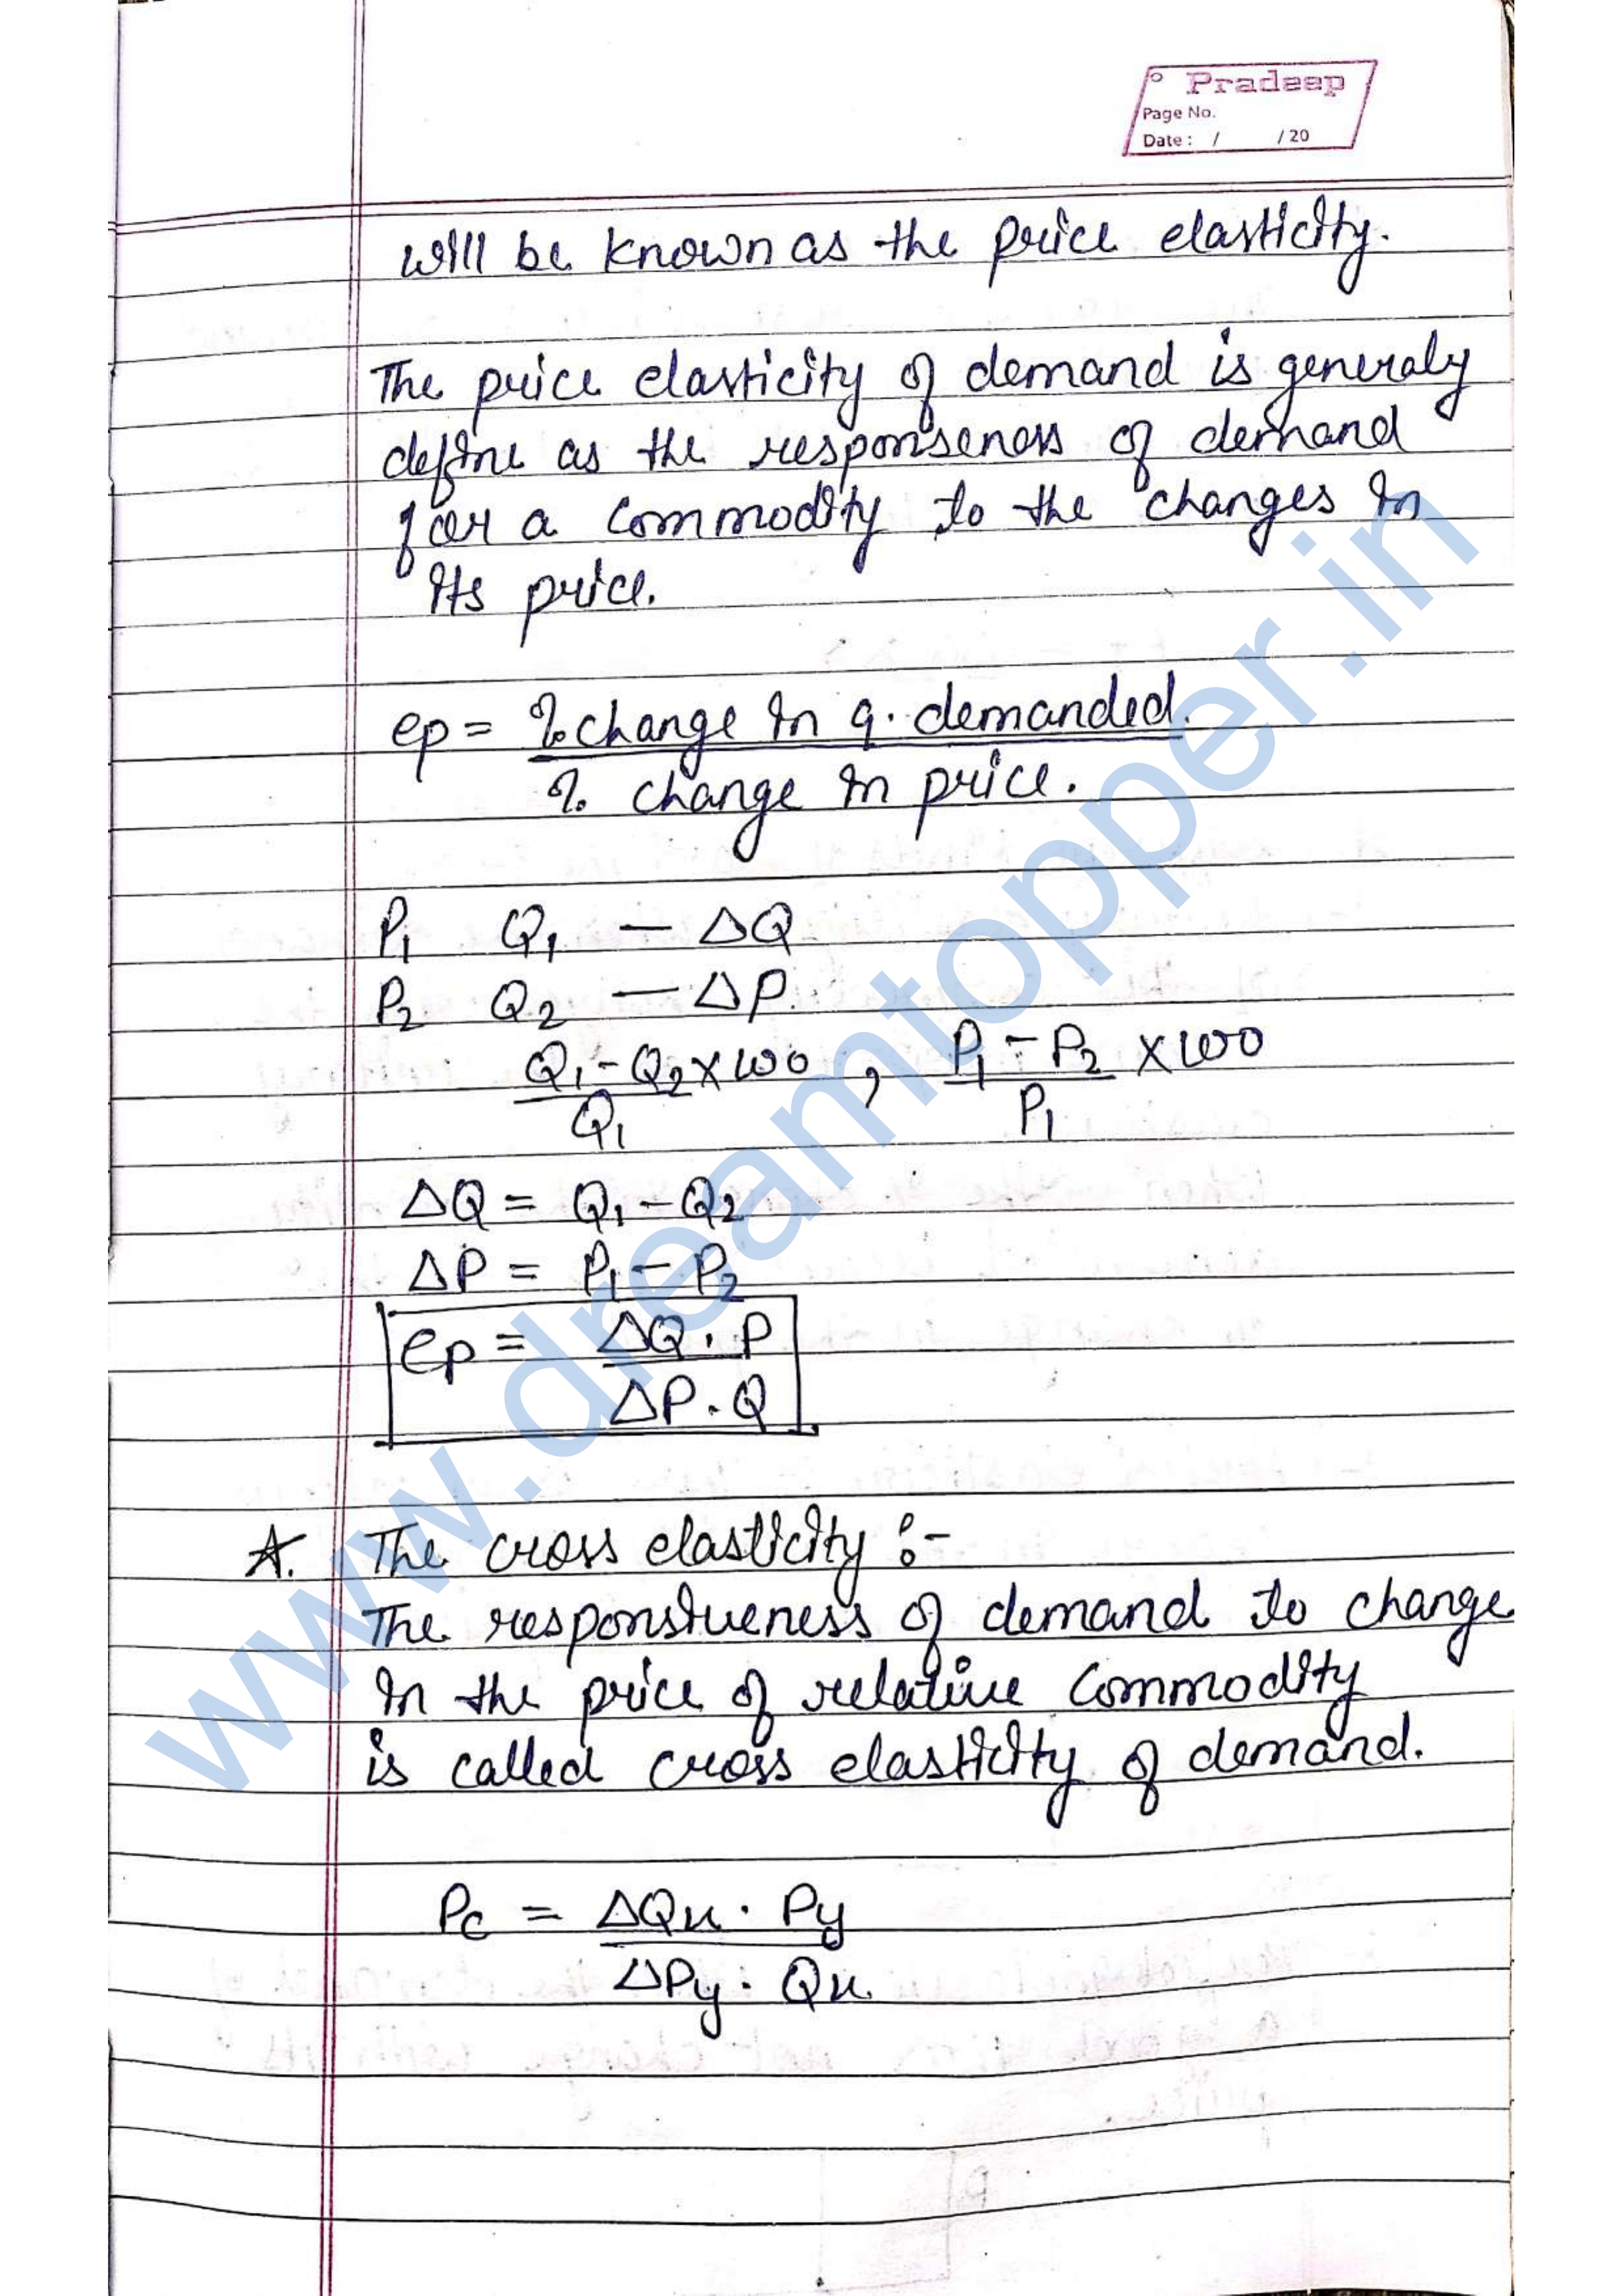 Pradeep
Page No.
Date : / / 20
will be known as the price elasticity.
The price elasticity of demand is generaly
define as the responseness of demand
for a commodity to the changes in
its price.
ep = % change in q. demanded.
% change in price.
P1 Q1 — ΔQ
P2 Q2 — ΔP.
Q1 - Q2 × 100 , P1 - P2 × 100
Q1 P1
ΔQ = Q1 - Q2
ΔP = P1 - P2
ep = ΔQ . P
ΔP . Q
A. The cross elasticity :-
The responsiveness of demand to change
in the price of relative commodity
is called cross elasticity of demand.
Pc = ΔQx . Py
ΔPy . Qx
www.dreamtopper.in